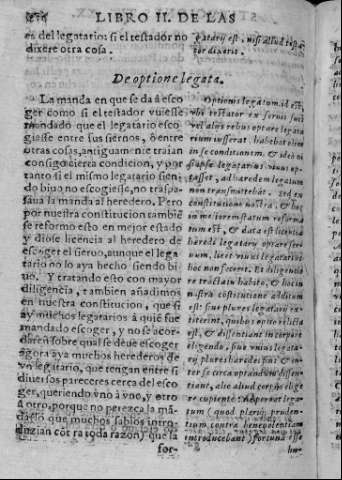 LIBRO II. DE LAS
es del legatario: si el testador no
dixere otra cosa.
De optione legata.
La manda en que se da á esco
ger como si el testador vuiesse
mandado que el legatario esco
giesse entre sus sieruos, ò entre
otras cosas, antiguamẽte traian
consigo cierta condicion, y por
tanto si el mismo legatario sien
do biuo no escogiesse, no traspas
saua la manda al heredero. Pero
por nuestra constitucion tambiẽ
se reformo esto en mejor estado
y diose licencia al heredero de
escoger el sieruo, aunque el lega
tario no lo aya hecho siendo bi
uo. Y tratando esto con mayor
diligencia, tambien añadimos
en nuestra constitucion, que si
ay muchos legatarios à quiẽ fue
mandado escoger, y no se acor
daren sobre qual se deue escoger
agora aya muchos herederos de
vn legatario, que tengan entre si
diuersos pareceres cerca del esco
ger, queriendo vno à vno, y otro
à otro, porque no perezca la mã
da (lo que muchos sabios intro
duzian cõtra toda razon) que la
for-
gatarij est, nisi aliud testa
tor dixerit.
Optionis legatum, id est,
vbi testator ex seruis suis
vel alijs rebus optare legata
rium iusserat, habebat olim
in se conditionem, & ideò ni
si ipse legatarius viuus op-
tasset, ad hæredem legatum
non transmittebat. sed ex
constitutione nostra, & hoc
in meliorem statum reforma
tum est, & data est licentia
hæredi legatarij optare serui
uum, licet viuus legatarius
hoc non fecerit. Et diligentio
re tractatu habito, & hoc in
nostra cõstitutione additum
est: siue plures legatarij ex
isterint, quibus optio relicta
est, & dissentiant in corpore
eligendo, siue vnius legata-
rij plures hæredes sint, & in-
ter se circa optandum dissen-
tiant, alio aliud corpus elige
re cupiente: Ne pereat lega-
tum (quod pleriq; pruden-
tium contra beneuolentiam
introducebant) fortunã esse
hu-